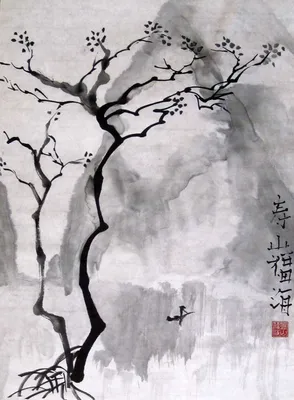 寿山福海